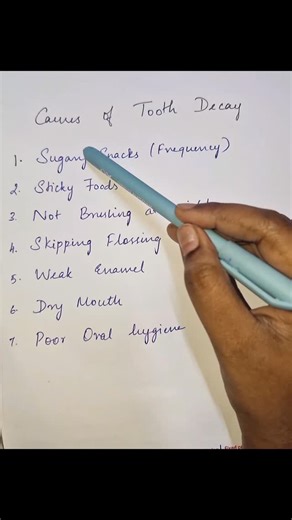 Causes of Tooth Decay
1. Sugary Snacks (Frequency)
2. Sticky Foods
3 Not Brushing
4. Skipping Flossing
5. Weak Enamel
6. Dry Mouth
7. Poor Oral hygiene